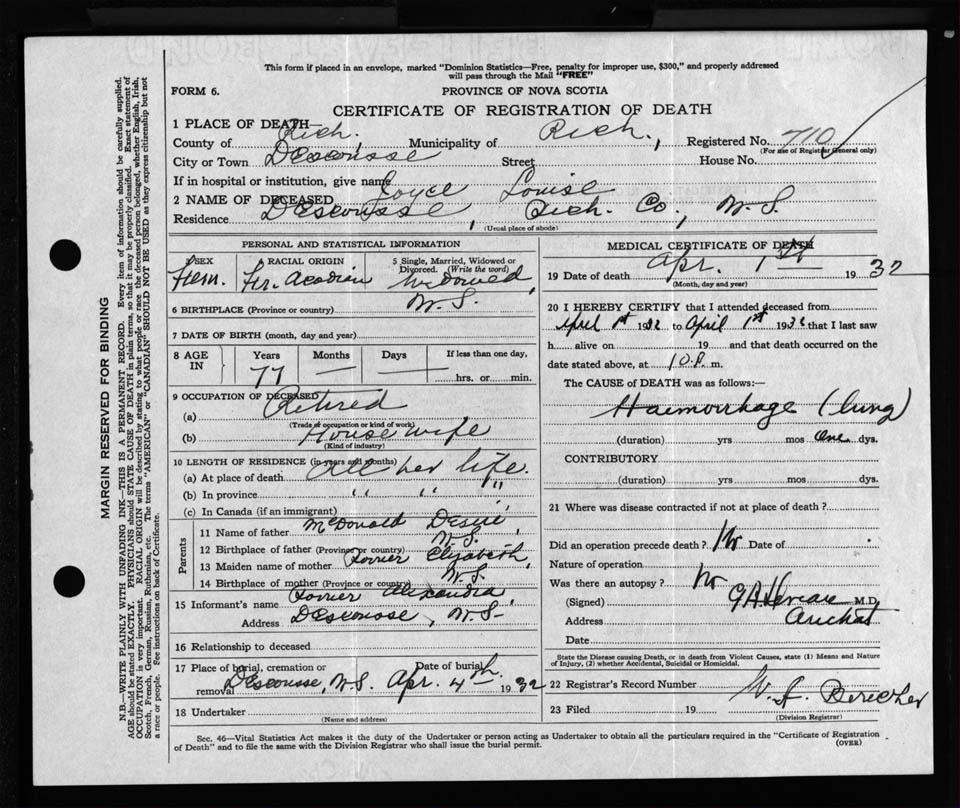 This form if placed in an envelope, marked "Dominion Statistics—Free, penalty for improper use, $300," and properly addressed
will pass through the Mail "FREE"
FORM 6.
PROVINCE OF NOVA SCOTIA
CERTIFICATE OF REGISTRATION OF DEATH
1 PLACE OF DEATH—
County of Rich., Municipality of Rich., Registered No. 710
(For use of Registrar General only)
City or Town Descousse Street House No.
If in hospital or institution, give name
2 NAME OF DECEASED Joyce Louise
Residence Descousse, Rich. Co., N.S.
(Usual place of abode)
PERSONAL AND STATISTICAL INFORMATION
3 SEX Fem.
4 RACIAL ORIGIN Fr. Acadian
5 Single, Married, Widowed or Divorced. (Write the word) Widowed
6 BIRTHPLACE (Province or country) N.S.
7 DATE OF BIRTH (month, day and year)
8 AGE IN Years Months Days If less than one day,
77 — — hrs. or min.
9 OCCUPATION OF DECEASED
(a) Retired
(Trade of occupation or kind of work)
(b) House wife
(Kind of industry)
10 LENGTH OF RESIDENCE (in years and months)
(a) At place of death All her life.
(b) In province " " "
(c) In Canada (if an immigrant)
Parents
11 Name of father McDonald Desire
12 Birthplace of father (Province or country) N.S.
13 Maiden name of mother Poirier Elizabeth,
14 Birthplace of mother (Province or country) N.S.
15 Informant's name Poirier Alexandria,
Address Descousse, N.S.
16 Relationship to deceased
17 Place of burial, cremation or removal Descousse, N.S. Date of burial Apr. 4th. 1932
18 Undertaker
(Name and address)
MEDICAL CERTIFICATE OF DEATH
19 Date of death Apr. 1st 1932
(Month, day and year)
20 I HEREBY CERTIFY that I attended deceased from
April 1st 1932 to April 1st 193 that I last saw
h alive on 19 and that death occurred on the
date stated above, at 10 P. m.
The CAUSE OF DEATH was as follows:—
Haemorrhage (lung)
(duration) yrs mos one dys.
CONTRIBUTORY
(duration) yrs mos dys.
21 Where was disease contracted if not at place of death?
Did an operation precede death? No Date of
Nature of operation
Was there an autopsy? No
(Signed) M.D.
Address Arichat
Date
State the Disease causing Death, or in death from Violent Causes, state (1) Means and Nature
of Injury, (2) whether Accidental, Suicidal or Homicidal.
22 Registrar's Record Number
23 Filed 19 W. J.
(Division Registrar)
Sec. 46—Vital Statistics Act makes it the duty of the Undertaker or person acting as Undertaker to obtain all the particulars required in the "Certificate of Registration
of Death" and to file the same with the Division Registrar who shall issue the burial permit.
(OVER)
MARGIN RESERVED FOR BINDING
N.B.—WRITE PLAINLY WITH UNFADING INK—THIS IS A PERMANENT RECORD. Every item of information should be carefully supplied.
AGE should be stated EXACTLY. PHYSICIANS should STATE CAUSE OF DEATH in plain terms, so that it may be properly classified. Exact statement of
OCCUPATION is very important. RACIAL ORIGIN will be described by stating to what people or race the deceased person belonged, whether English, Irish,
Scotch, French, German, Russian, Ruthenian, etc. The terms "AMERICAN" or "CANADIAN" SHOULD NOT BE USED as they express citizenship but not
a race or people. See instructions on back of Certificate.